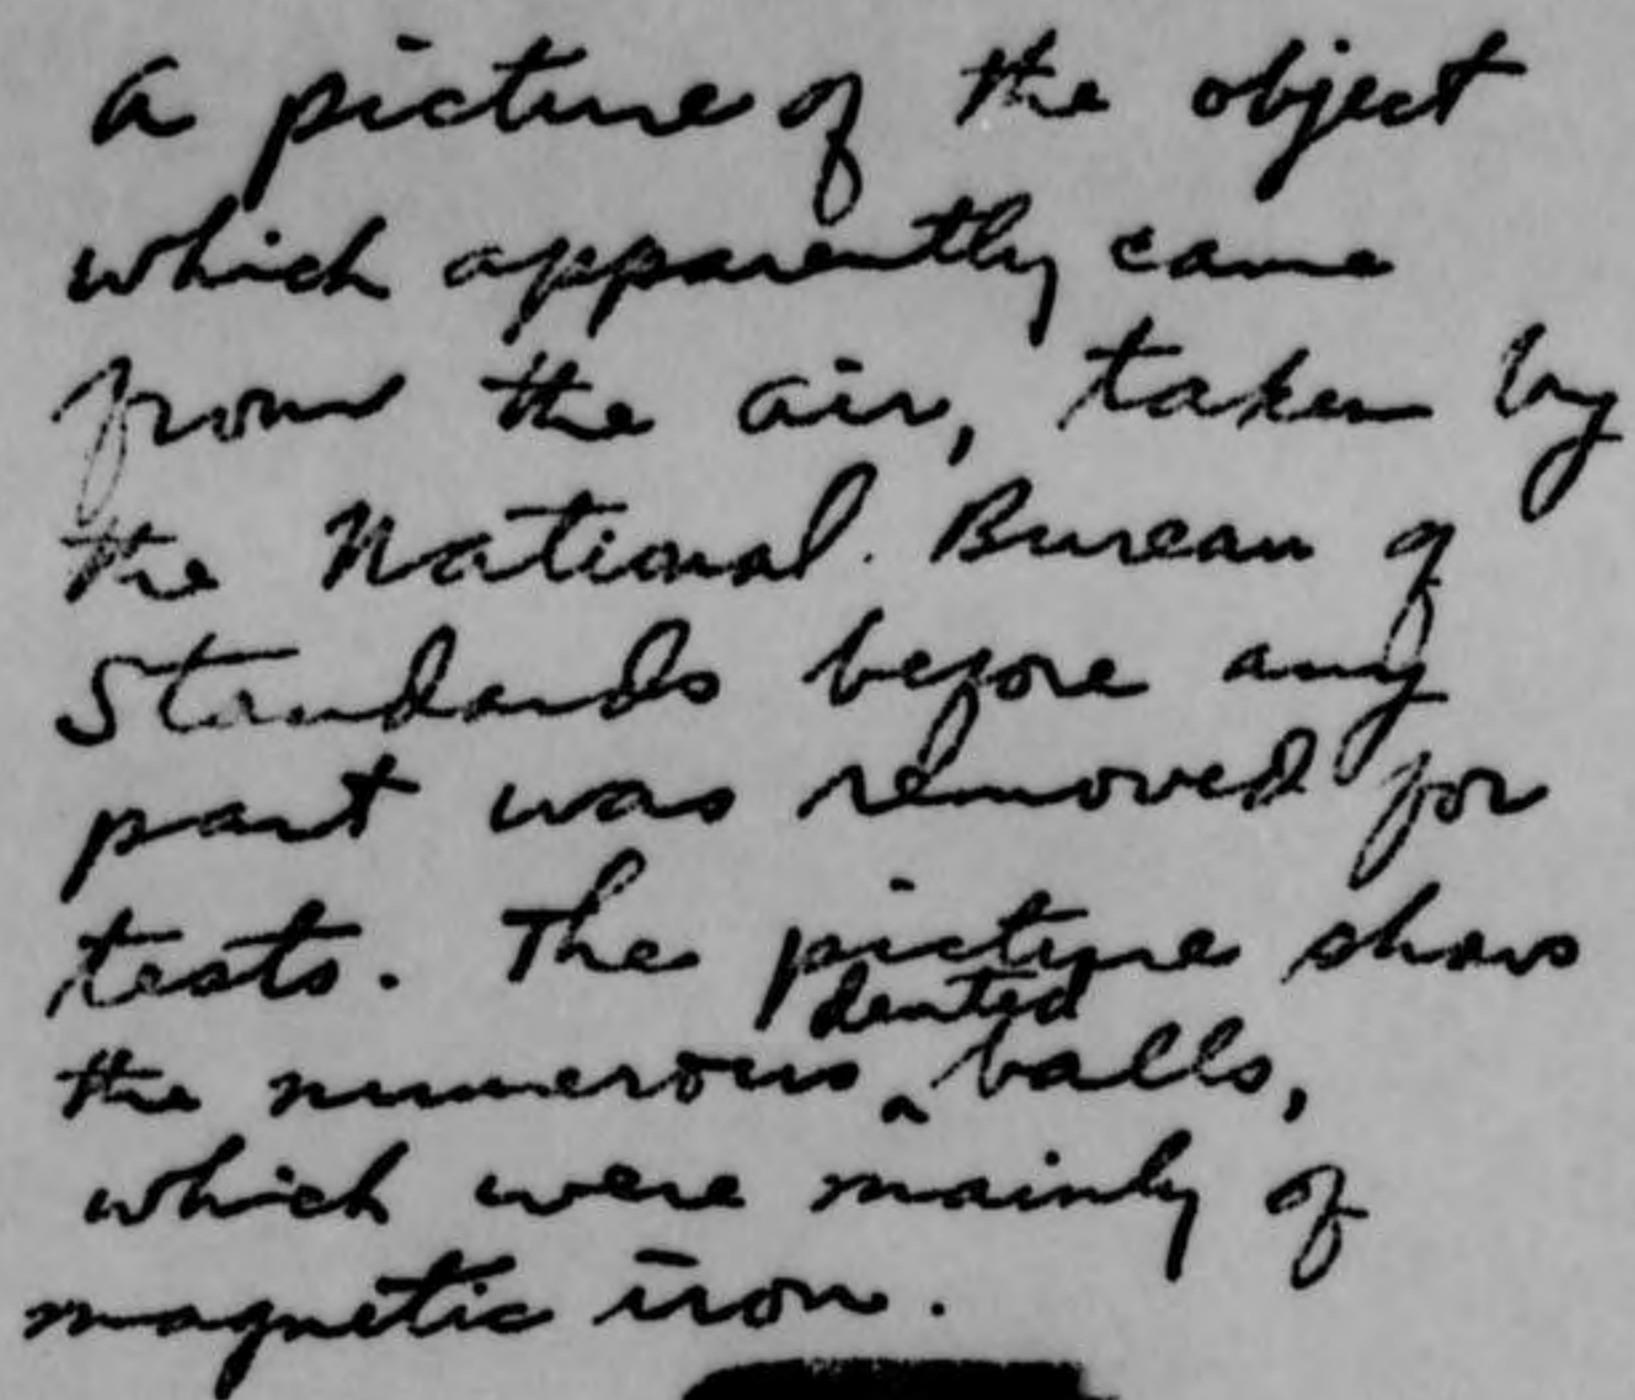 A picture of the object
which apparently came
from the air, taken by
the National Bureau of
Standards before any
part was removed for
tests. The picture shows
dented
the numerous ‸ balls,
which were mainly of
magnetic iron.